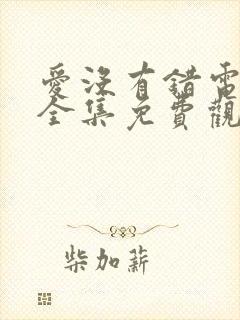 愛沒有錯電
全集免費觀
柴加薪